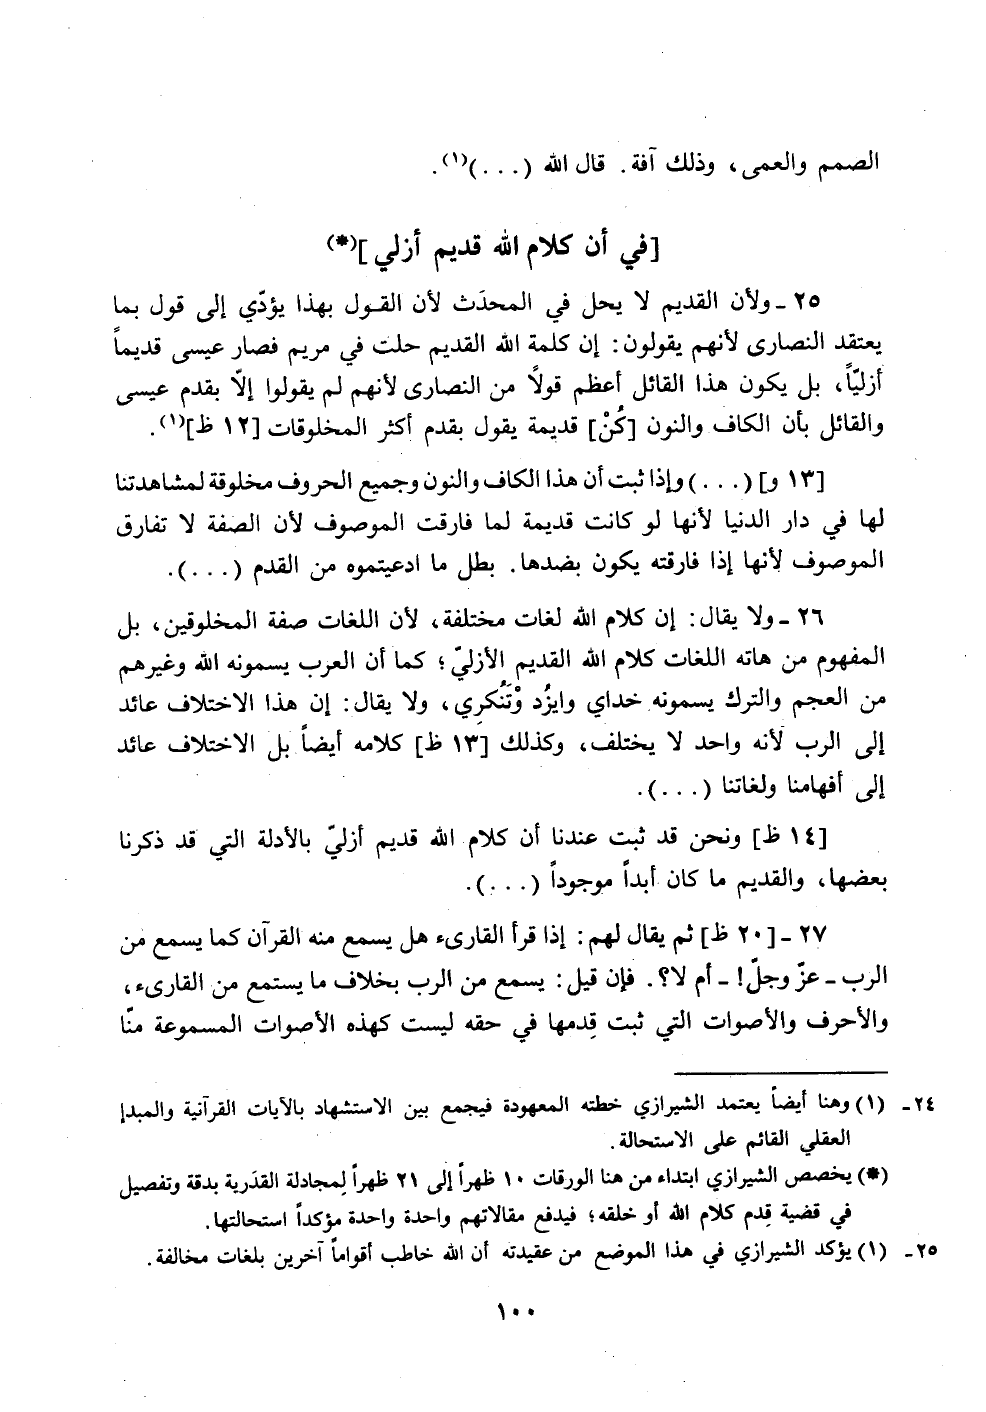 الصمم والعمى، وذلك آفة. قال الله (...)(١).
[في أن كلام الله قديم أزلي](*)
٢٥ ـ ولأن القديم لا يحل في المحدَث لأن القول بهذا يؤدّي إلى قول بما
يعتقد النصارى لأنهم يقولون: إن كلمة الله القديم حلت في مريم فصار عيسى قديماً
أزليّاً، بل يكون هذا القائل أعظم قولاً من النصارى لأنهم لم يقولوا إلّا بقدم عيسى
والقائل بأن الكاف والنون [كُنْ] قديمة يقول بقدم أكثر المخلوقات [١٢ ظ](١).
[١٣ و] (...) وإذا ثبت أن هذا الكاف والنون وجميع الحروف مخلوقة لمشاهدتنا
لها في دار الدنيا لأنها لو كانت قديمة لما فارقت الموصوف لأن الصفة لا تفارق
الموصوف لأنها إذا فارقته يكون بضدها. بطل ما ادعيتموه من القدم (...).
٢٦ ـ ولا يقال: إن كلام الله لغات مختلفة، لأن اللغات صفة المخلوقين، بل
المفهوم من هاته اللغات كلام الله القديم الأزليّ؛ كما أن العرب يسمونه الله وغيرهم
من العجم والترك يسمونه خداي وايزُد وْتَنُكرِي، ولا يقال: إن هذا الاختلاف عائد
إلى الرب لأنه واحد لا يختلف، وكذلك [١٣ ظ] كلامه أيضاً بل الاختلاف عائد
إلى أفهامنا ولغاتنا (...).
[١٤ ظ] ونحن قد ثبت عندنا أن كلام الله قديم أزليّ بالأدلة التي قد ذكرنا
بعضها، والقديم ما كان أبداً موجوداً (...).
٢٧ ـ [٢٠ ظ] ثم يقال لهم: إذا قرأ القارىء هل يسمع منه القرآن كما يسمع من
الرب ـ عزّ وجلّ! ـ أم لا؟. فإن قيل: يسمع من الرب بخلاف ما يستمع من القارىء،
والأحرف والأصوات التي ثبت قِدمها في حقه ليست كهذه الأصوات المسموعة منّا
٢٤ـ (١) وهنا أيضاً يعتمد الشيرازي خطته المعهودة فيجمع بين الاستشهاد بالآيات القرآنية والمبدإ
العقلي القائم على الاستحالة.
(*) يخصص الشيرازي ابتداء من هنا الورقات ١٠ ظهراً إلى ٢١ ظهراً لِمجادلة القدَرية بدقة وتفصيل
في قضية قِدم كلام الله أو خلقه؛ فيدفع مقالاتهم واحدة واحدة مؤكداً استحالتها.
٢٥ـ (١) يؤكد الشيرازي في هذا الموضع من عقيدته أن الله خاطب أقواماً آخرين بلغات مخالفة.
١٠٠